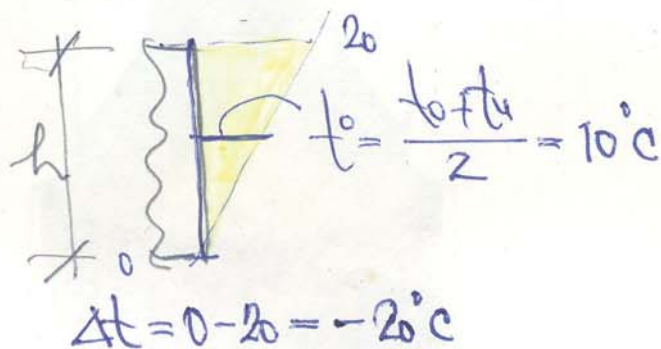 20
h
t° = (to + tu) / 2 = 10°C
0
Δt = 0 - 20 = -20°C